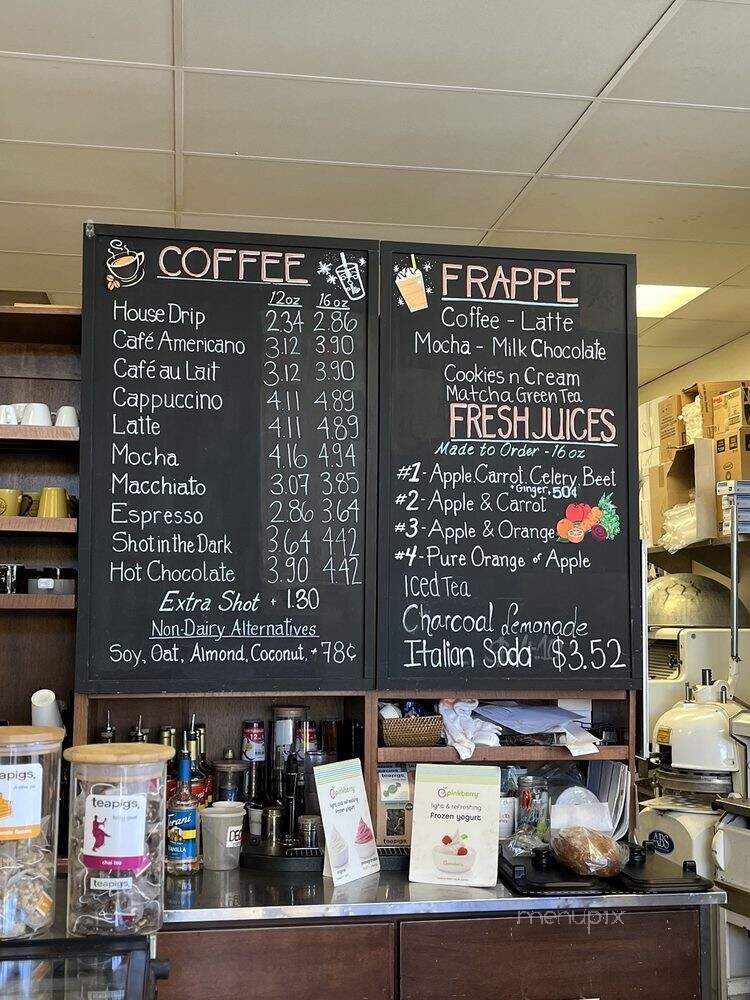 COFFEE
12oz 16oz
House Drip 2.34 2.86
Café Americano 3.12 3.90
Café au Lait 3.12 3.90
Cappuccino 4.11 4.89
Latte 4.11 4.89
Mocha 4.16 4.94
Macchiato 3.07 3.85
Espresso 2.86 3.64
Shot in the Dark 3.64 4.42
Hot Chocolate 3.90 4.42
Extra Shot + 1.30
Non-Dairy Alternatives
Soy, Oat, Almond, Coconut, +78¢
FRAPPE
Coffee - Latte
Mocha - Milk Chocolate
Cookies n Cream
Matcha Green Tea
FRESH JUICES
Made to Order - 16 oz
#1 - Apple, Carrot, Celery, Beet
+Ginger .50¢
#2 - Apple & Carrot
#3 - Apple & Orange
#4 - Pure Orange or Apple
Iced Tea
Charcoal Lemonade
Italian Soda $3.52
teapigs.
chai tea
teapigs.
apigs.
Torani
VANILLA
DEC
pinkberry
original
pinkberry
light & refreshing
Frozen yogurt
teapigs.
ABS
menupix